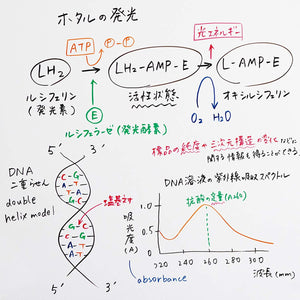 ホタルの発光
ATP
P-P
光エネルギー
LH₂
LH₂-AMP-E
L-AMP-E
ルシフェリン
(発光素)
E
活性状態
O₂ H₂O
オキシルシフェリン
ルシフェラーゼ(発光酵素)
標品の純度や三次元構造の変化などに
関する情報を得ることができる。
DNA
二重らせん
double
helix model
5' 3'
C-G
A-T
T-A
G-C
塩基対
C-G
G-C
A-T
T-A
5' 3'
DNA溶液の紫外線吸収スペクトル
核酸の定量(A260)
吸光度(A)
1.5
1.0
0.5
0
220 260 300
波長(mm)
absorbance